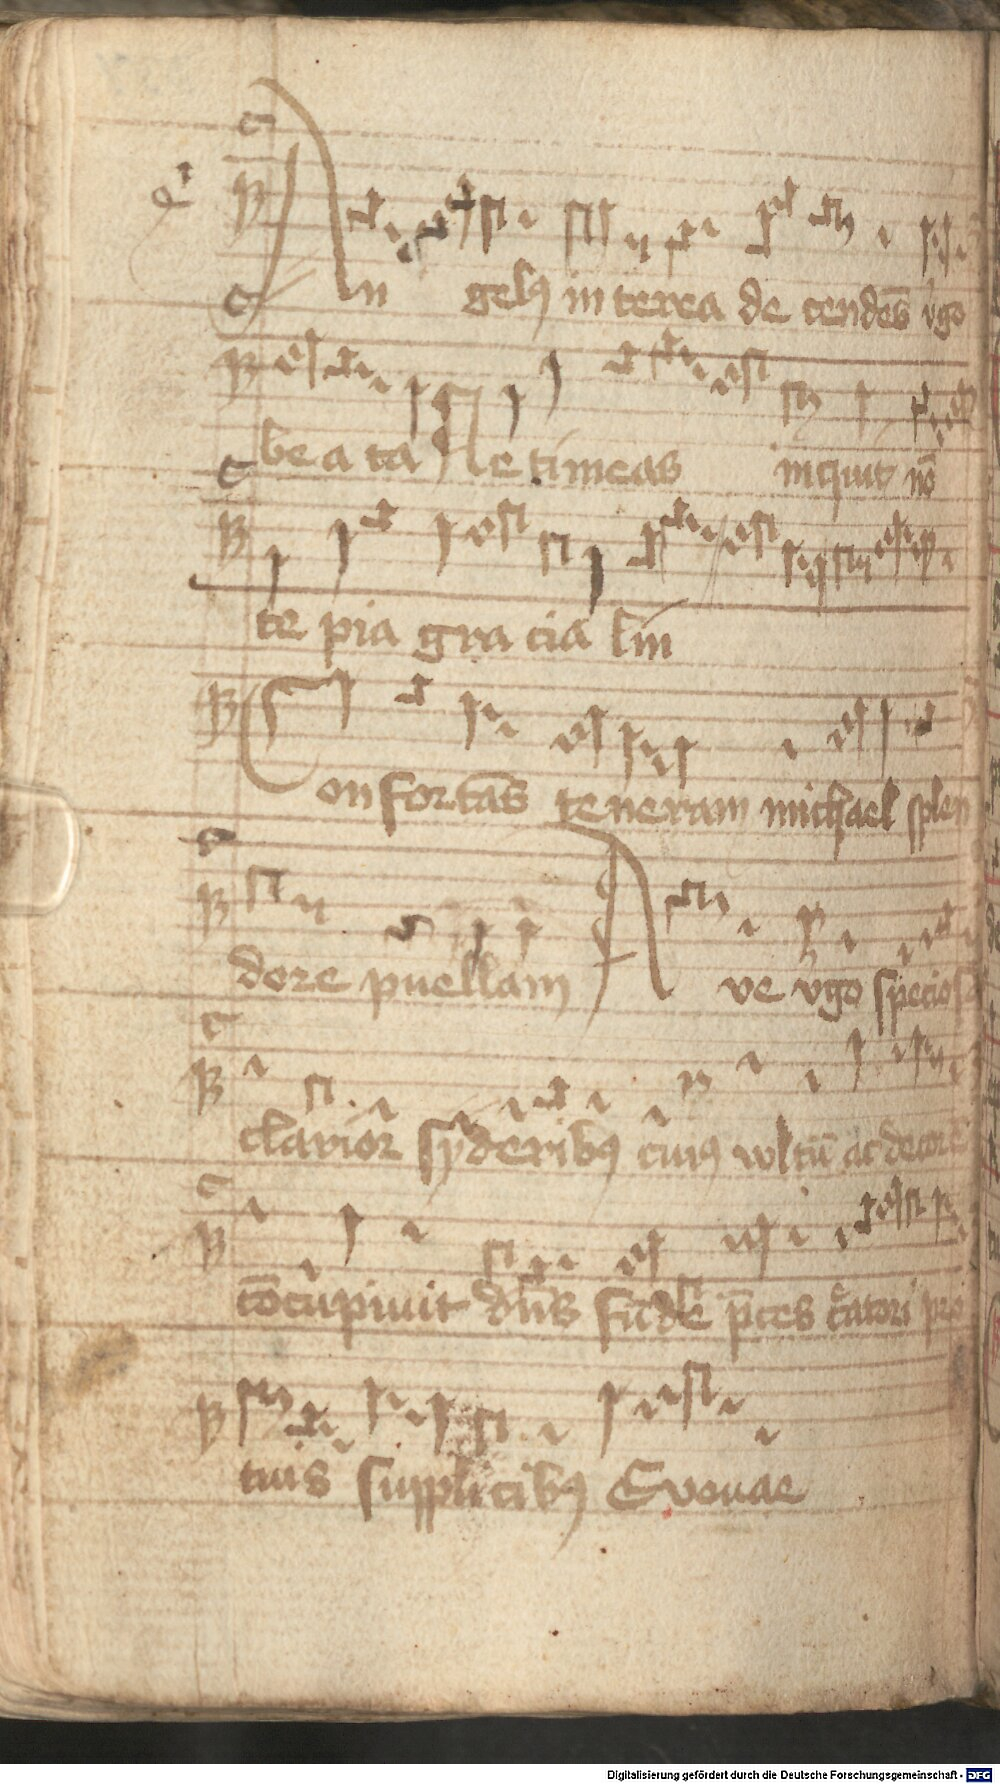 An gelꝰ in terea de cendēs v̄go
be a ta Ne timeas inquit nō
te pia gra cia lm̄
Confortās teneram michael splen
dore puellam Ave v̄go speciosa
clarior syderibꝰ cuiꝰ vultū ac decorē
cōcupivit dn̄s
tuis supplicibꝰ Evovae
Digitalisierung gefördert durch die Deutsche Forschungsgemeinschaft - DFG